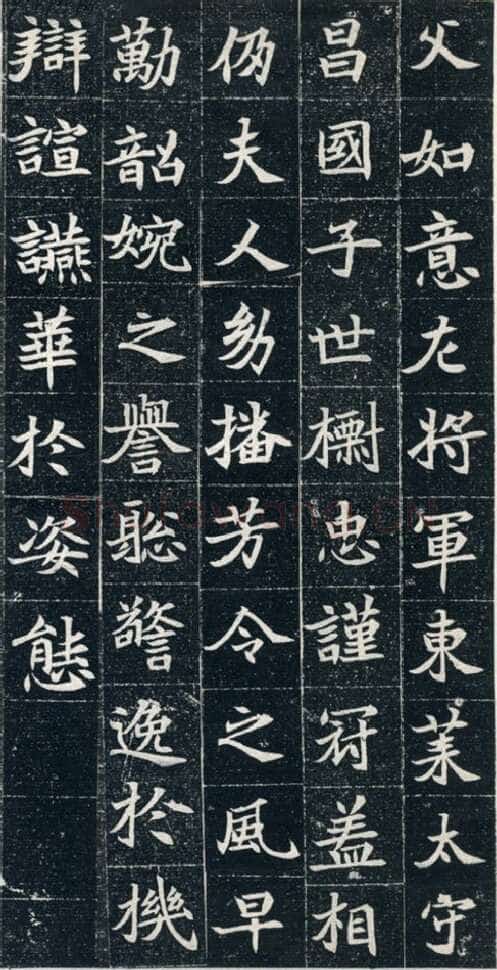 父如意左将軍東莱太守
昌國子世樹忠謹冠盖相
仍夫人幼播芳令之風早
勤韶婉之譽聡警逸於機
辯諠讌華於姿態